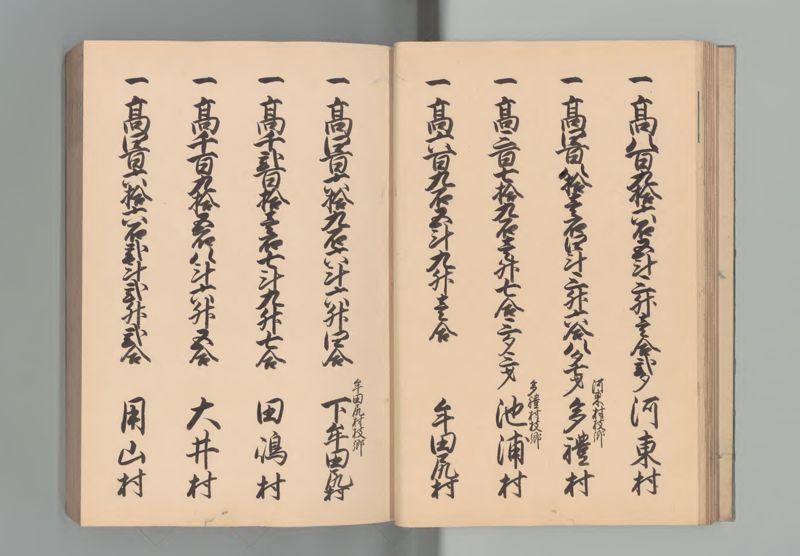 一 髙八百九拾六石五斗三升壱合弐夕 河東村
河東村枝郷
一 髙四百八拾壱石四斗三升六合八夕七才 多禮村
多禮村枝郷
一 髙三百七拾九石壱升七合三夕三才 池浦村
一 髙六百九石五斗九升壱合 牟田尻村
牟田尻村枝郷
一 髙四百六拾九石六斗六升四合 下牟田尻村
一 髙千弐百拾壱石七斗九升七合 田嶋村
一 髙千百九拾五石八斗六升五合 大井村
一 髙四百六拾六石弐斗弐升弐合 用山村